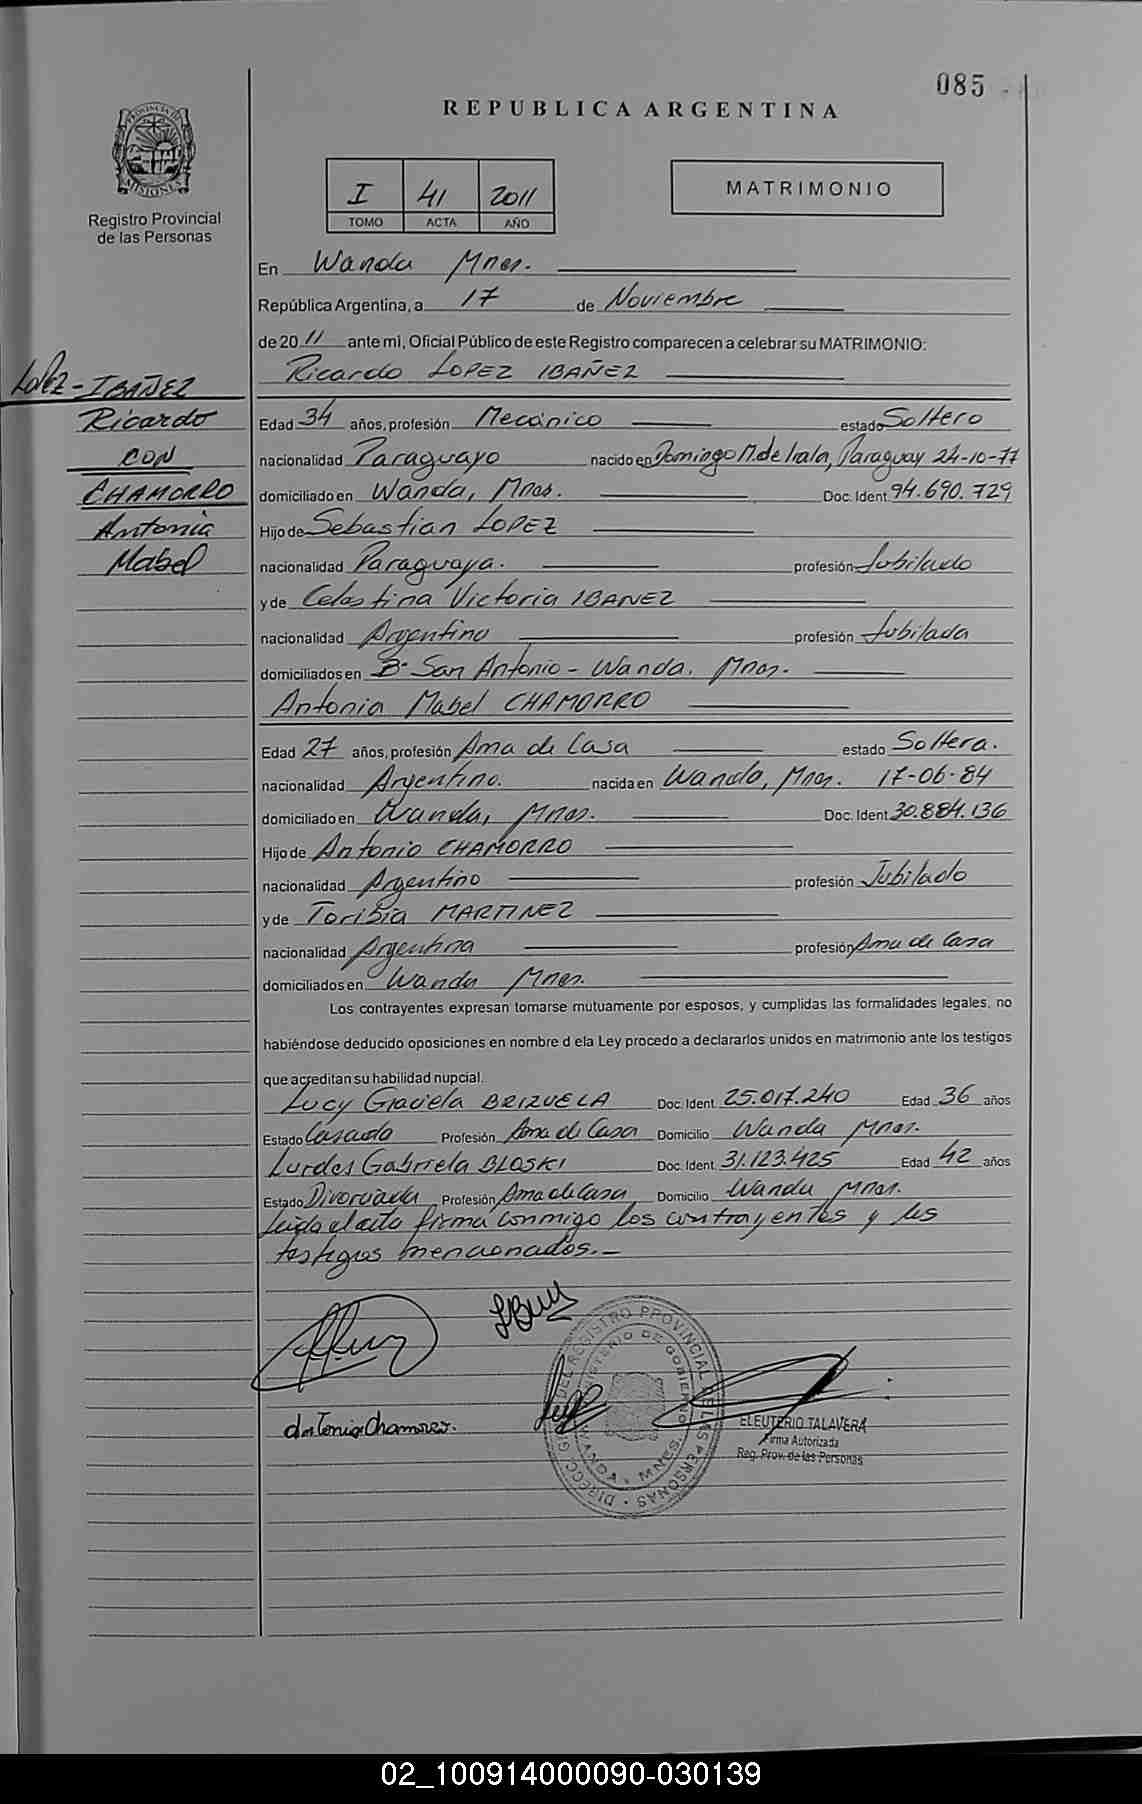 085
REPUBLICA ARGENTINA
PROVINCIA DE MISIONES
Registro Provincial
de las Personas
I 41 2011
TOMO ACTA AÑO
MATRIMONIO
En Wanda Mnes.
República Argentina, a 17 de Noviembre
de 2011 ante mi, Oficial Público de este Registro comparecen a celebrar su MATRIMONIO:
Ricardo LOPEZ IBAÑEZ
LOPEZ - IBAÑEZ
Ricardo
CON
CHAMORRO
Antonia
Mabel
Edad 34 años, profesión Mecánico estado Soltero
nacionalidad Paraguayo nacido en Domingo M. de Irala, Paraguay 24-10-77
domiciliado en Wanda, Mnes. Doc. Ident 94.690.729
Hijo de Sebastian LOPEZ
nacionalidad Paraguaya. profesión Jubilado
y de Celestina Victoria IBAÑEZ
nacionalidad Argentina profesión Jubilada
domiciliados en B° San Antonio - Wanda. Mnes.
Antonia Mabel CHAMORRO
Edad 27 años, profesión Ama de Casa estado Soltera.
nacionalidad Argentina. nacida en Wanda, Mnes. 17-06-84
domiciliado en Wanda, Mnes. Doc. Ident 30.884.136
Hijo de Antonio CHAMORRO
nacionalidad Argentino profesión Jubilado
y de Toribia MARTINEZ
nacionalidad Argentina profesión Ama de Casa
domiciliados en Wanda Mnes.
Los contrayentes expresan tomarse mutuamente por esposos, y cumplidas las formalidades legales, no
habiéndose deducido oposiciones en nombre d ela Ley procedo a declararlos unidos en matrimonio ante los testigos
que acreditan su habilidad nupcial.
Lucy Graciela BRIZUELA Doc. Ident. 25.017.240 Edad 36 años
Estado Casada Profesión Ama de Casa Domicilio Wanda Mnes.
Lurdes Gabriela BLOSKI Doc. Ident. 31.123.425 Edad 42 años
Estado Divorciada Profesión Ama de Casa Domicilio Wanda Mnes.
Leida el acta firma conmigo los contrayentes y los
testigos mencionados.-
Antonia Chamorro.
DIRECC. GRAL. DEL REGISTRO PROVINCIAL DE LAS PERSONAS
MINISTERIO DE GOBIERNO
WANDA - MNES.
ELEUTERIO TALAVERA
Firma Autorizada
Reg. Prov. de las Personas
02_100914000090-030139